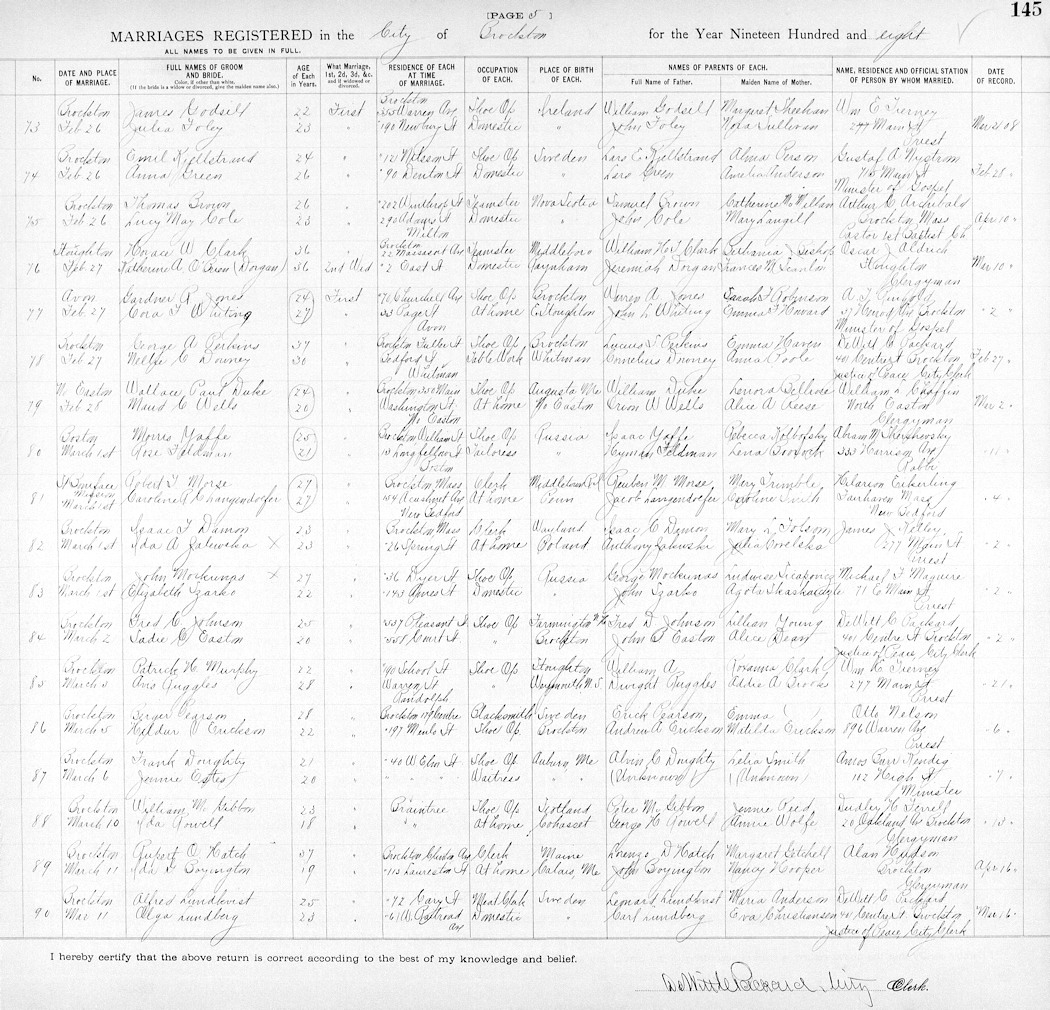 [PAGE 5]
145
MARRIAGES REGISTERED in the City of Brockton for the Year Nineteen Hundred and eight
ALL NAMES TO BE GIVEN IN FULL.
No. DATE AND PLACE OF MARRIAGE. FULL NAMES OF GROOM AND BRIDE. Color, if other than white. (If the bride is a widow or divorced, give the maiden name also.) AGE of Each in Years. What Marriage, 1st, 2d, 3d, &c. and if widowed or divorced. RESIDENCE OF EACH AT TIME OF MARRIAGE. OCCUPATION OF EACH. PLACE OF BIRTH OF EACH. NAMES OF PARENTS OF EACH. Full Name of Father. Maiden Name of Mother. NAME, RESIDENCE AND OFFICIAL STATION OF PERSON BY WHOM MARRIED. DATE OF RECORD.
Brockton James Godsell 22 First Brockton Warren Av Shoe Op Ireland William Godsell Margaret Sheehan Wm E Tierney
73 Feb 26 Julia Foley 23 " 190 Newbury St Domestic " John Foley Nora Sullivan 277 Main St Mar 21 08
Priest
Brockton Emil Kjellstrand 24 " " 121 Nilsson St Shoe Op Sweden Lars E. Kjellstrand Alma Person Gustaf A Nystrom
74 Feb 26 Anna Green 26 " " 90 Denton St Domestic " Lars Green Amelia Anderson Main St Feb 28
Minister of Gospel
Brockton Thomas Brown 26 " " 202 Winthrop St Teamster Nova Scotia Samuel Brown Catherine McMillan Arthur C Archibald
75 Feb 26 Lucy May Cole 23 " 295 Adams St Domestic " John Cole Mary Langill Brockton Mass Apr 10
Milton Pastor 1st Baptist Ch
Stoughton Horace W. Clark 36 " Brockton Av Teamster Middleboro William H. Clark Bethania Bishop Oscar J Aldrich
76 Feb 27 Katherine A O'Brien (Dorgan) 36 2nd Wid " 2 East St Domestic Raynham Jeremiah Dorgan Frances M Scanlon Stoughton Mar 10
Clergyman
Avon Gardner R Jones 24 First " 76 Churchill Av Shoe Op Brockton Warren A Jones Sarah Robinson A
77 Feb 27 Cora F Whiting 27 " 33 Page St At home E Stoughton John L Whiting Emma F Howard Brockton " 2
Avon Minister of Gospel
Brockton George A Perkins 37 " Brockton Fuller St Shoe Op Brockton Lucius S Perkins Emma Haven DeWitt C Packard
78 Feb 27 Nellie C Downey 30 " Bedford St Table Work Whitman Cornelius Downey Anna Poole 40 Centre St Brockton Feb 27
Whitman Justice of Peace City Clerk
No Easton Wallace Paul Duke 24 " Brockton Main Shoe Op Augusta Me William Duke Lenora Bellevie William L Chaffin
79 Feb 28 Maud C Wells 20 " Washington St At home No Easton Orson W Wells Alice A Reese North Easton Mar 2
No Easton Clergyman
Boston Morris Yaffe 25 " Brockton William St Shoe Op Russia Isaac Yaffe Rebecca Abram M Shershevsky
80 March 1st Rose Feldman 21 " Longfellow St Tailoress " Hyman Feldman Lena 333 Harrison Av " 11
Boston Rabbi
St Boniface Mission Robert F Morse 27 " Brockton Mass Clerk Middletown R.I. Reuben M. Morse Mary Trimble Hilarion Eikerling
81 March 1st Caroline R Changendorfer 27 " Acushnet Av At home Penn Jacob Langendorfer Caroline Smith Fairhaven Mass " 4
New Bedford New Bedford
Brockton Isaac F Damon 23 " Brockton Mass Clerk Wayland Isaac C Damon Mary L Folsom James J Kelley
82 March 1st Ida A Zalewska X 23 " " 26 Spring St At home Poland Anthony Zalewski Julia 277 Main St " 2
Priest
Brockton John Mockunas X 27 " " 36 Dyer St Shoe Op Russia George Mockunas Michael F Maguire
83 March 1st Elizabeth Czarko 22 " " 143 Ames St Domestic " John Czarko Agota 71 E Main St " 2
Priest
Brockton Fred C Johnson 25 " " 537 Pleasant St Shoe Op Farmington N.H. Fred D Johnson Lillian Young DeWitt C Packard
84 March 2 Sadie C Easton 20 " " 558 Court St " Brockton John B Easton Alice Beam 40 Centre St Brockton " 2
Justice of Peace City Clerk
Brockton Patrick H Murphy 22 " " 90 School St Shoe Op Stoughton William A Roxanna Clark Wm E Tierney
85 March 3 Avis Ruggles 28 " Warren St " Weymouth N.S. Dwight Ruggles Addie A Brooks 277 Main St " 21
Randolph Priest
Brockton Birger Pearson 28 " Brockton Centre Blacksmith Sweden Erick Pearson Emma ( ) Otto Nelson
86 March 5 Hildur V Erickson 22 " " 197 Menlo St Shoe Op Brockton Andrew A Erickson Matilda Erickson 896 Warren Av " 6
Priest
Brockton Frank Doughty 21 " " 40 W Elm St Shoe Op Auburn, Me Alvin C Doughty Lelia Smith Amos Parr Rendig
87 March 6 Jennie Estes 20 " " " " Waitress " " (Unknown) (Unknown) 112 High St " 7
Minister
Brockton William M. Gibbon 23 " Braintree Shoe Op Scotland Peter McGibbon Jennie Reed Dudley H Ferrell
88 March 10 Ida Rowell 18 " " " At home Cohasset George H Rowell Annie Wolfe 20 Oakland Av Brockton " 13
Clergyman
Brockton Rupert O Hatch 37 " Brockton Clinton Av Clerk Maine Lorenzo D Hatch Margaret Getchell Alan Hudson
89 March 11 Ida L Boyington 19 " " 113 Laureston St At home Calais, Me John Boyington Nancy Hooper Brockton Apr 16
Clergyman
Brockton Alfred Lundkvist 25 " " 72 Cary St Meat Clerk Sweden Leonard Lundkvist Maria Anderson DeWitt C Packard
90 Mar 11 Olga Lundberg 23 " " 61 W. Railroad Av Domestic " Carl Lundberg Eva Christiansen 40 Centre St Brockton Mar 16
Justice of Peace City Clerk
I hereby certify that the above return is correct according to the best of my knowledge and belief.
DeWitt C Packard, City Clerk.